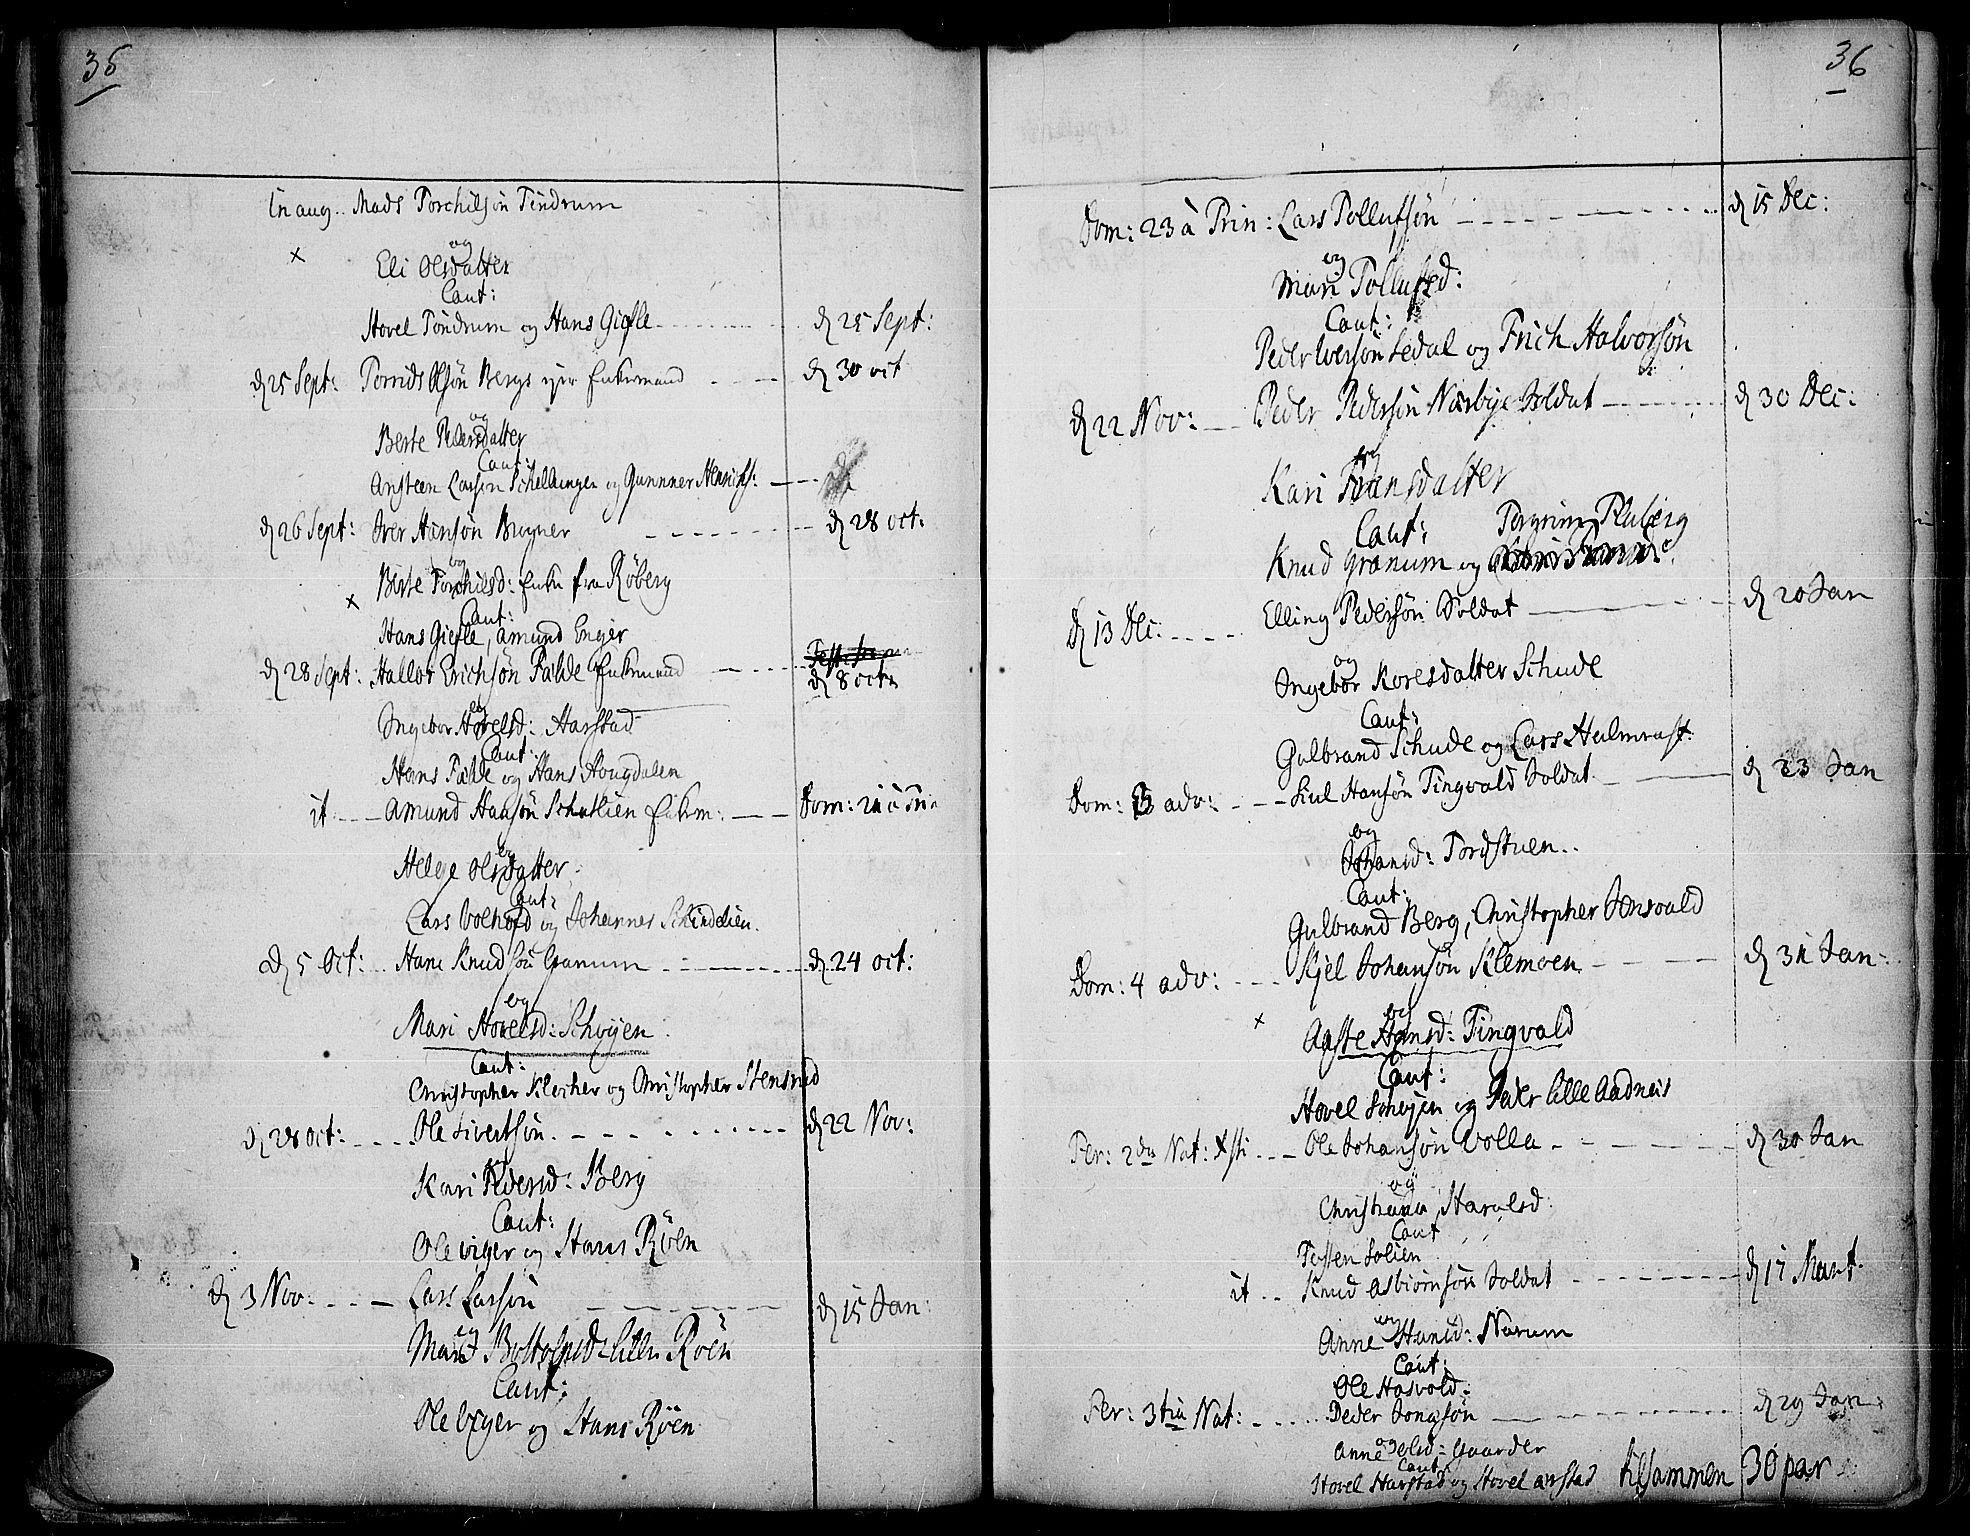 36
In aug. Mads Torchilsøn Tindrum
og
× Eli Olsdatter
Caut:
Hovel Tøndrum og Hans Giefle ... d 25 Sept:
d 25 Sept: Olsøn Bergs Enkemand ... d 30 oct
og
Berte Pedersdatter
Caut:
Ansteen Larsøn og Gunner
d 26 Sept: Iver Hansøn Brugner ... d 28 oct:
og
× Berte Torchilsd: Enke fra Røberg
Caut:
Hans Giefle, Amund Enger
d 28 Sept: Hallor Erichsøn Falde Enkemand ... d 8 oct:
og
Ingebor Hovelsd: Harstad
Caut:
Hans Falde og Hans Hougdalen
it ... Amund Hansøn Enkem: ... Dom:
og
Helge Olsdatter
Caut:
Lars og Johannes
d 5 Oct: Hans Knudsøn Granum ... d 24 oct:
og
Mari Hovelsd: Schøyen
Caut:
Christopher Klocher og Christopher Stensrud
d 28 oct: ... Ole Sivertsøn ... d 22 Nov:
og
Kari Pedersd: Berg
Caut:
Ole viger og Hans Røen
d 3 Nov: ... Lars Larsøn ... d 15 Jan:
og
Mari Lille Røen
Caut:
Ole viger og Hans Røen
36
Dom: 23 à Trin: Lars Tollufsøn ... d 15 Dec:
og
Mari Tollufsd:
Caut:
Peder Iversøn Ledal og Erich Halvorsøn
d 22 Nov: ... Peder Pedersøn Nærbye Soldat ... d 30 Dec:
og
Kari Fransdatter
Caut: Torgrim Fluberg
Knud Granum og
d 13 Dec: ... Elling Pedersøn Soldat ... d 20 Jan
og
Ingebor Koresdatter Schude
Caut:
Gulbrand Schude og Lars Halmrast:
Dom: 3 adv: ... Hansøn Tingvald Soldat ... d 23 Jan
og
Johansd: Tordstuen
Caut:
Gulbrand Berg, Christopher Jonsvald
Dom: 4 adv: ... Kjel Johansøn Klemoen ... d 31 Jan:
og
× Agste Hansd: Tingvold
Caut:
Hovel Schøyen og Peder lille Aadnæs
Fer: 2da Nat: Xsti ... Ole Johansøn Volla ... d 30 Jan
og
Christiana Haralsd:
Caut
Tosten Solien
it .. Knud Asbiørnsøn Soldat ... d 17 Mart.
og
Anne Hansd: Narum
Caut:
Ole Hasvold:
Fer: 3tia Nat: ... Peder Jongsøn ... d 29 Jan:
og
Anne Gaarder
Caut:
Hovel Harstad og Hovel Arstad tilsammen 30 par